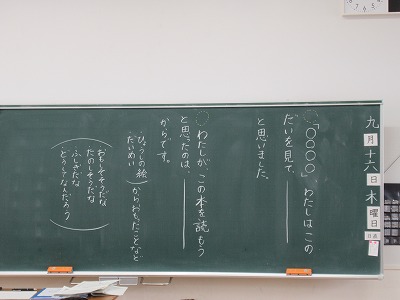 九月十六日木曜日
日直
「○○○○」わたしはこの
だいを見て、
と思いました。
わたしが、この本を読もう
と思ったのは、
からです。
ひょうしの絵
だいめい
からおもったことなど
おもしろそうだな
たのしそうだな
ふしぎだな
どうしてなんだろう